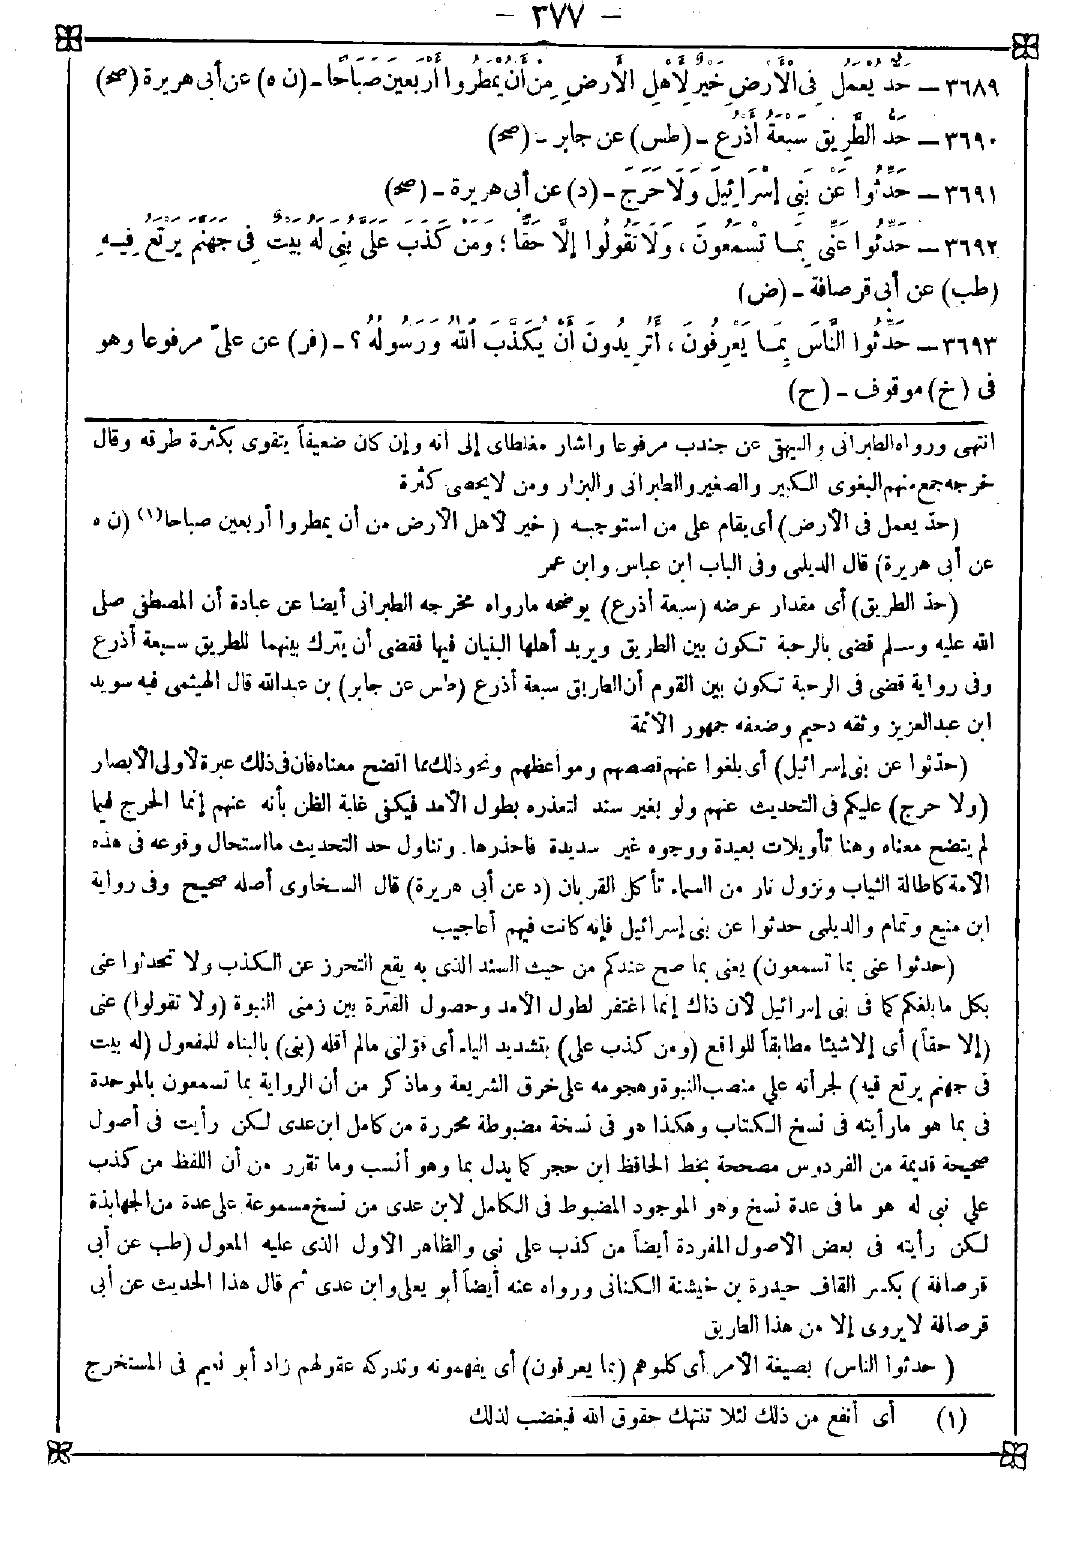 – ٣٧٧ –
٣٦٨٩ – حَدٌّ يُعْمَلُ فِى الْأَرْضِ خَيْرٌ لِأَهْلِ الْأَرْضِ مِنْ أَنْ يُمْطَرُوا أَرْبَعِينَ صَبَاحًا – (ن ه) عن أبى هريرة (صح)
٣٦٩٠ – حَدُّ الطَّرِيقِ سَبْعَةُ أَذْرُعٍ – (طس) عن جابر – (صح)
٣٦٩١ – حَدِّثُوا عَنْ بَنِى إِسْرَائِيلَ وَلَا حَرَجَ – (د) عن أبى هريرة – (صح)
٣٦٩٢ – حَدِّثُوا عَنِّى بِمَا تَسْمَعُونَ ، وَلَا تَقُولُوا إِلَّا حَقًّا ؛ وَمَنْ كَذَبَ عَلَىَّ بُنِىَ لَهُ بَيْتٌ فِى جَهَنَّمَ يَرْتَعُ فِيهِ
(طب) عن أبى قرصافة – (ض)
٣٦٩٣ – حَدِّثُوا النَّاسَ بِمَا يَعْرِفُونَ ، أَتُرِيدُونَ أَنْ يُكَذَّبَ اللهُ وَرَسُولُهُ ؟ – (فر) عن علىّ مرفوعا وهو
فى (خ) موقوف – (ح)
انتهى ورواه الطبرانى والبيهقى عن جندب مرفوعا وأشار مغلطاى إلى أنه وإن كان ضعيفاً يتقوى بكثرة طرقه وقال
خرجه جمع منهم البغوى الكبير والصغير والطبرانى والبزار ومن لا يحصى كثرة
(حدّ يعمل فى الأرض) أى يقام على من استوجبه (خير لأهل الأرض من أن يمطروا أربعين صباحا(١) (ن ه
عن أبى هريرة) قال الديلمى وفى الباب ابن عباس وابن عمر
(حدّ الطريق) أى مقدار عرضه (سبعة أذرع) يوضحه مارواه مخرجه الطبرانى أيضا عن عبادة أن المصطفى صلى
الله عليه وسلم قضى بالرحبة تكون بين الطريق ويريد أهلها البنيان فيها فقضى أن يترك بينهما للطريق سبعة أذرع
وفى رواية قضى فى الرحبة تكون بين القوم أن الطريق سبعة أذرع (طس عن جابر) بن عبدالله قال الهيثمى فيه سويد
ابن عبدالعزيز وثقه دحيم وضعفه جمهور الأئمة
(حدّثوا عن بنى إسرائيل) أى بلغوا عنهم قصصهم ومواعظهم ونحو ذلك مما اتضح معناه فان فى ذلك عبرة لأولى الأبصار
(ولا حرج) عليكم فى التحديث عنهم ولو بغير سند لتعذره بطول الأمد فيكفى غلبة الظن بأنه عنهم إنما الحرج فيما
لم يتضح معناه وهنا تأويلات بعيدة ووجوه غير سديدة فاحذرها. وتناول حد التحديث ما استحال وقوعه فى هذه
الأمة كاطالة الثياب ونزول نار من السماء تأكل القربان (د عن أبى هريرة) قال السخاوى أصله صحيح وفى رواية
ابن منيع وتمام والديلمى حدثوا عن بنى إسرائيل فإنه كانت فيهم أعاجيب
(حدثوا عنى بما تسمعون) يعنى بما صح عندكم من حيث السند الذى به يقع التحرز عن الكذب ولا تحدثوا عنى
بكل ما بلغكم كما فى بنى إسرائيل لأن ذاك إنما اغتفر لطول الأمد وحصول الفترة بين زمنى النبوة (ولا تقولوا) عنى
(إلا حقاً) أى إلا شيئا مطابقاً للواقع (ومن كذب على) بتشديد الياء أى قولنى مالم أقله (بنى) بالبناء للمفعول (له بيت
فى جهنم يرتع فيه) لجرأته على منصب النبوة وهجومه على خرق الشريعة وماذكر من أن الرواية بما تسمعون بالموحدة
فى بما هو مارأيته فى نسخ الكتاب وهكذا هو فى نسخة مضبوطة محررة من كامل ابن عدى لكن رأيت فى أصول
صحيحة قديمة من الفردوس مصححة بخط الحافظ ابن حجر كما يدل بما وهو أنسب وما تقرر من أن اللفظ من كذب
على نبى له هو ما فى عدة نسخ وهو الموجود المضبوط فى الكامل لابن عدى من نسخ مسموعة على عدة من الجهابذة
لكن رأيته فى بعض الأصول المفردة أيضاً من كذب على نبى والظاهر الأول الذى عليه المعول (طب عن أبى
قرصافة) بكسر القاف حيدرة بن خيشنة الكنانى ورواه عنه أيضاً أبو يعلى وابن عدى ثم قال هذا الحديث عن أبى
قرصافة لا يروى إلا من هذا الطريق
(حدثوا الناس) بصيغة الأمر أى كلموهم (بما يعرفون) أى يفهمونه وتدركه عقولهم زاد أبو نعيم فى المستخرج
(١) أى أنفع من ذلك لئلا تنتهك حقوق الله فيغضب لذلك